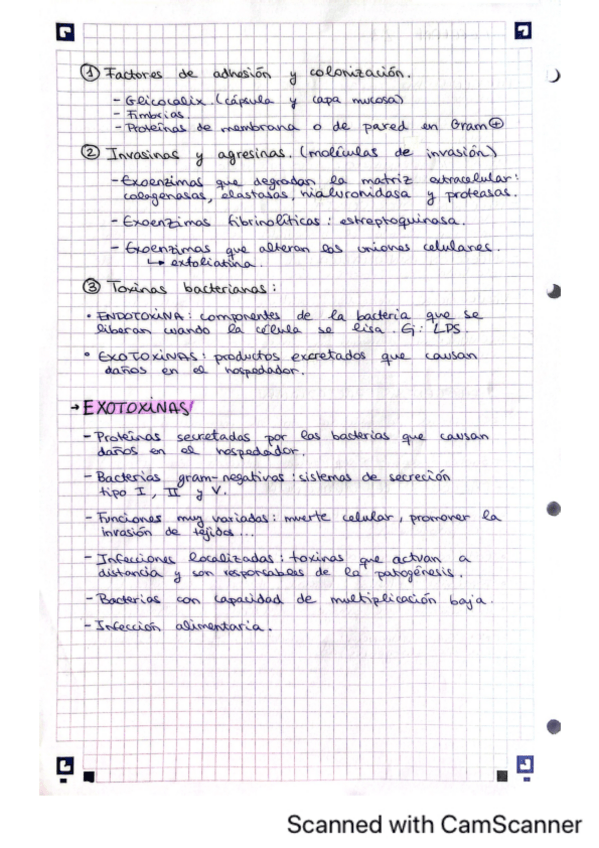 ① Factores de adhesión y colonización.
- Glicocalix. (cápsula y capa mucosa)
- Fimbrias.
- Proteínas de membrana o de pared en Gram⊕
② Invasinas y agresinas. (moléculas de invasión)
- Exoenzimas que degradan la matriz extracelular:
colagenasas, elastasas, hialuronidasa y proteasas.
- Exoenzimas fibrinolíticas: estreptoquinasa.
- Exoenzimas que alteran las uniones celulares.
↳ exfoliatina.
③ Toxinas bacterianas:
• ENDOTOXINA: componentes de la bacteria que se
liberan cuando la célula se lisa. Ej: LPS.
• EXOTOXINAS: productos excretados que causan
daños en el hospedador.
→ EXOTOXINAS
- Proteínas secretadas por las bacterias que causan
daños en el hospedador.
- Bacterias gram-negativas: sistemas de secreción
tipo I, II y V.
- Funciones muy variadas: muerte celular, promover la
invasión de tejidos...
- Infecciones localizadas: toxinas que actúan a
distancia y son responsables de la patogénesis.
- Bacterias con capacidad de multiplicación baja.
- Infección alimentaria.
Scanned with CamScanner